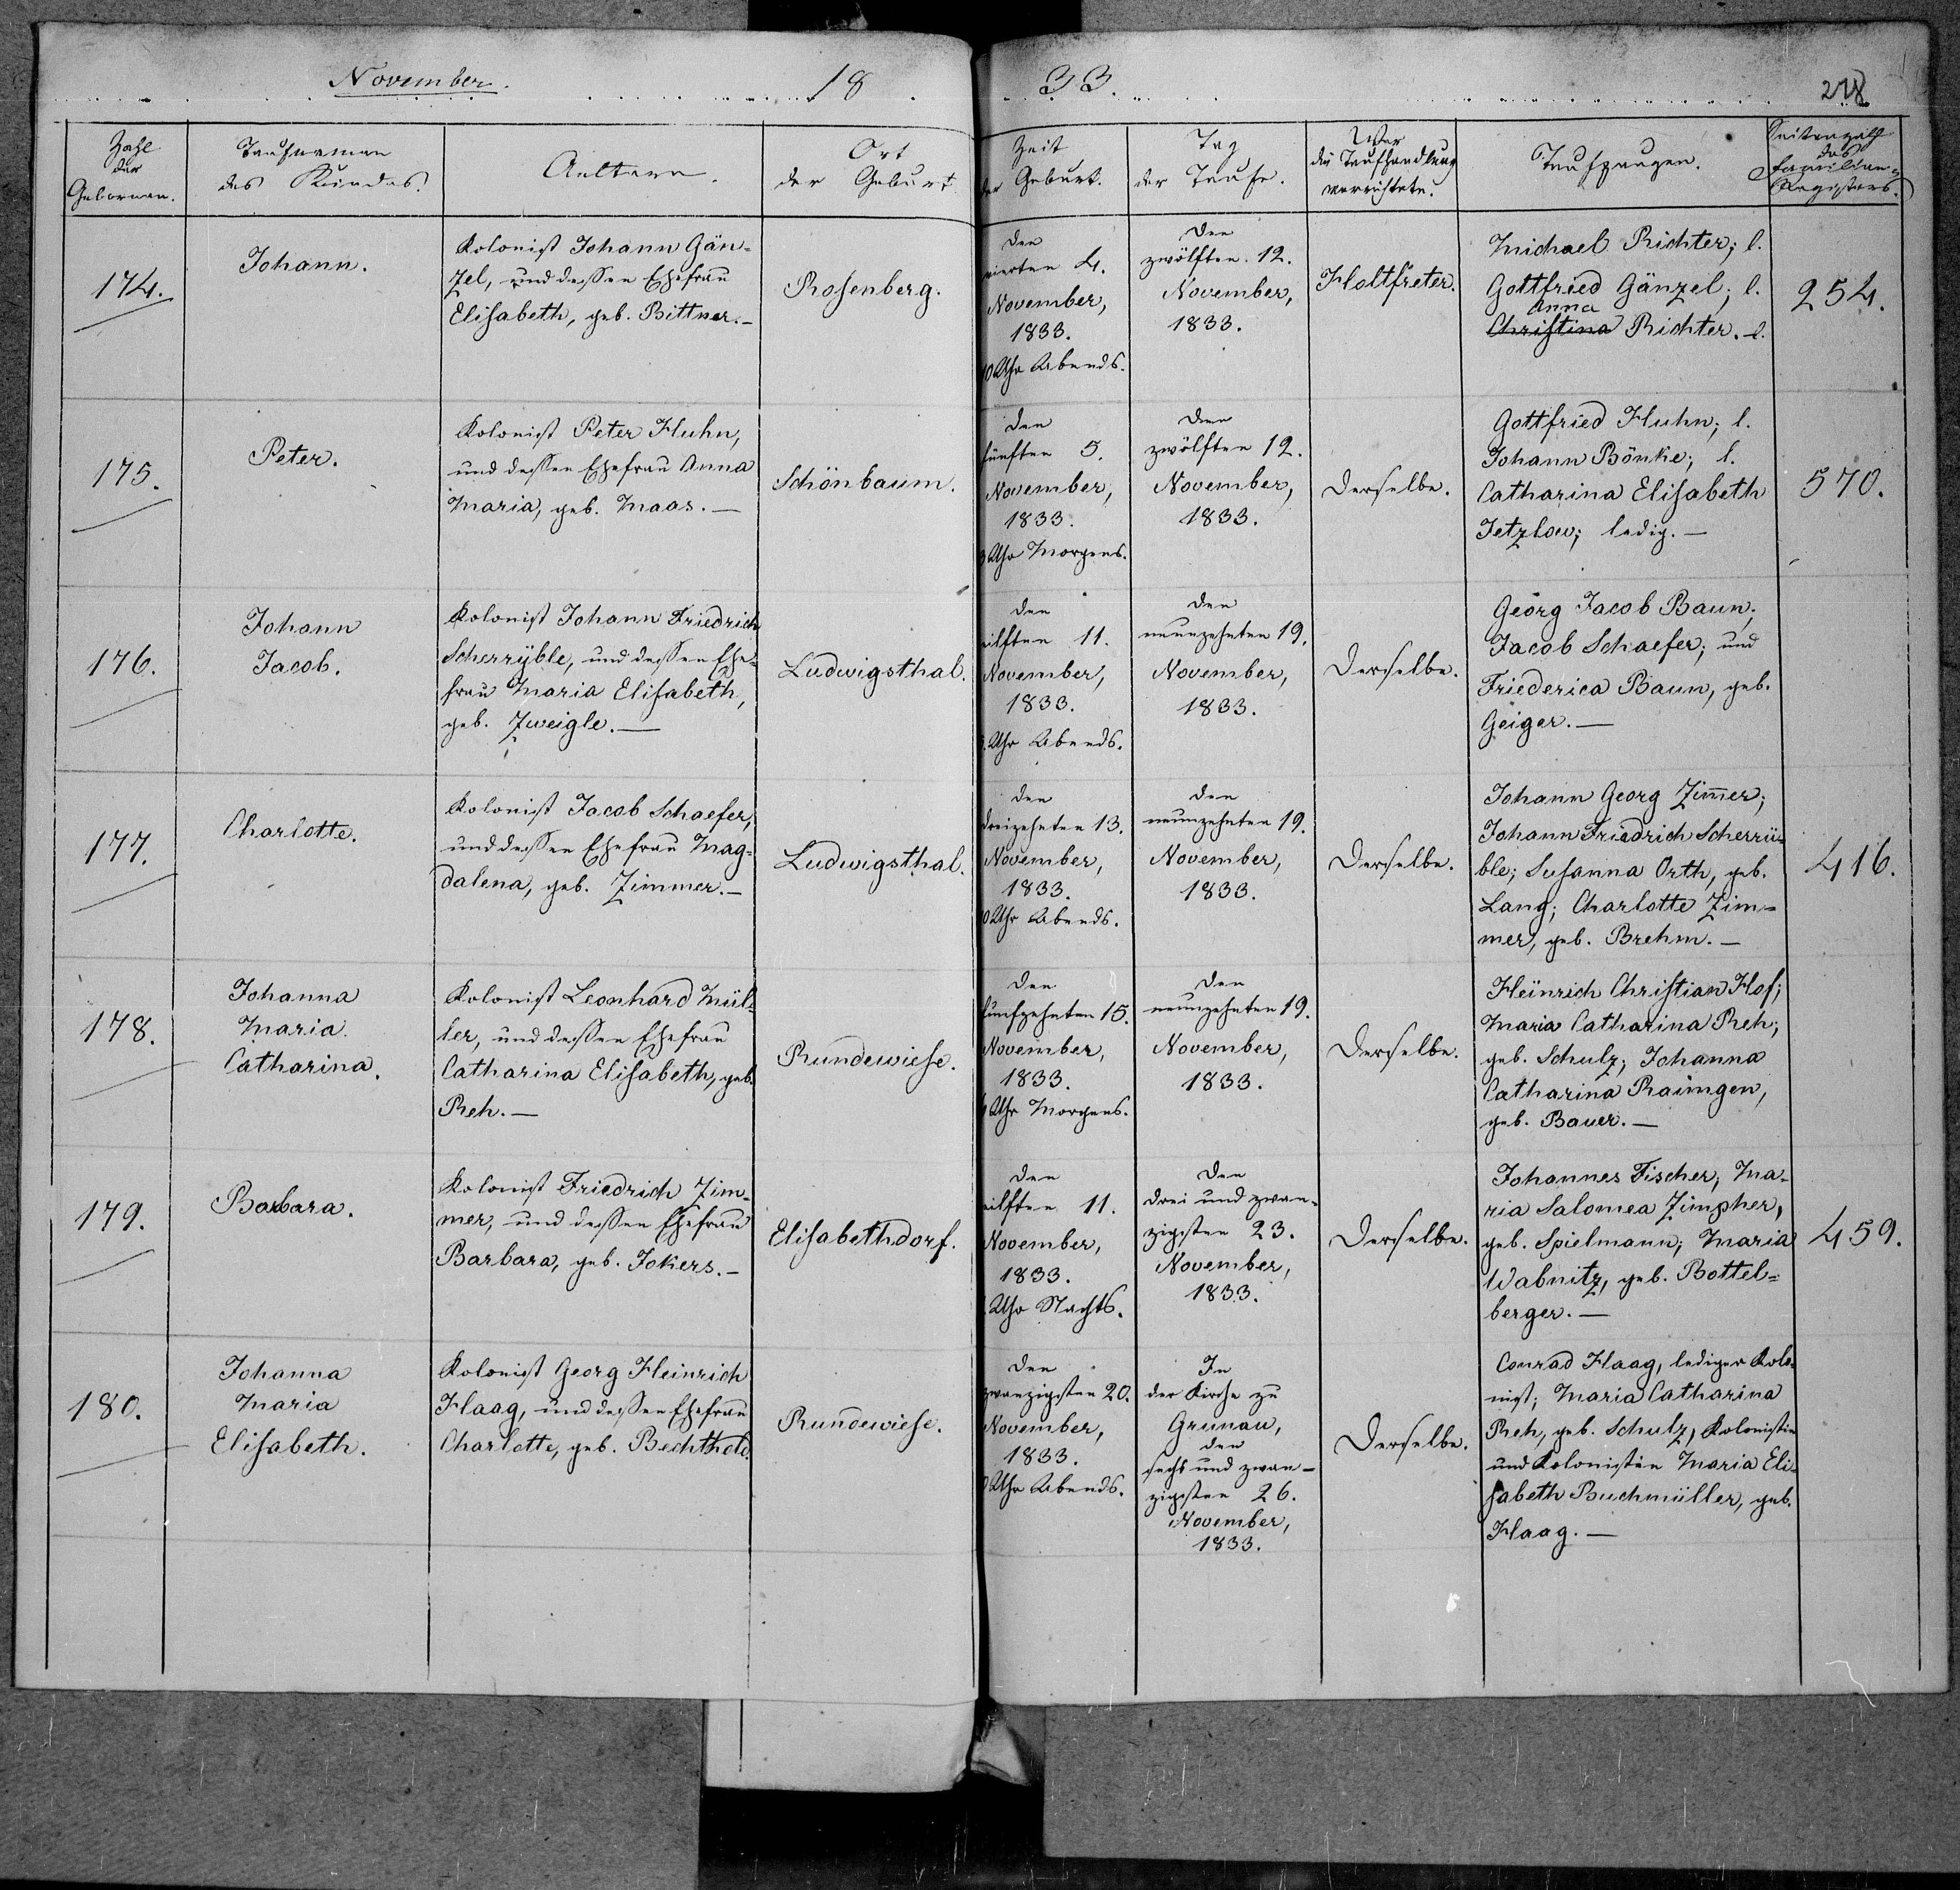 November.
18
33.
278
Zahl
der
Gebornen.
Taufnamen
des Kindes.
Aeltern.
Ort
der Geburt.
Zeit
der Geburt.
Tag
der Taufe.
Wer
die Taufhandlung
verrichtete.
Taufzeugen.
Seitenzahl
des
Familien-
Registers.
174.
Johann.
Kolonist Johann Gän-
zel, und dessen Ehefrau
Elisabeth, geb. Bittner.—
Rosenberg.
den
vierten 4.
November,
1833.
10 Uhr Abends.
den
zwölften. 12.
November,
1833.
Holtfreter.
Michael Richter; l.
Gottfried Gänzel; l.
Anna
Christina Richter. l.
254.
175.
Peter.
Kolonist Peter Huhn,
und dessen Ehefrau Anna
Maria, geb. Maas.—
Schönbaum.
den
fünften 5.
November,
1833.
3 Uhr Morgens.
den
zwölften 12.
November,
1833.
derselbe.
Gottfried Huhn; l.
Johann Bönke; l.
Catharina Elisabeth
Jetzlow; ledig.—
570.
176.
Johann
Jacob.
Kolonist Johann Friedrich
Scherrÿble, und dessen Ehe-
frau Maria Elisabeth,
geb. Zweigle.—
Ludwigsthal.
den
eilften 11.
November,
1833.
Uhr Abends.
den
neunzehnten 19.
November,
1833.
derselbe.
Georg Jacob Baun;
Jacob Schaefer; und
Friederica Baun, geb.
Geiger.—
177.
Charlotte.
Kolonist Jacob Schaefer,
und dessen Ehefrau Mag-
dalena, geb. Zimmer.—
Ludwigsthal.
den
dreizehnten 13.
November,
1833.
Uhr Abends.
den
neunzehnten 19.
November,
1833.
derselbe.
Johann Georg Zim̄er;
Johann Friedrich Scherrü-
ble; Susanna Orth, geb.
Lang; Charlotte Zim-
mer, geb. Brehm.—
416.
178.
Johanna
Maria
Catharina.
Kolonist Leonhard Mül-
ler, und dessen Ehefrau
Catharina Elisabeth, geb.
Reh.—
Rundewiese.
den
fünfzehnten 15.
November,
1833.
Uhr Morgens.
den
neunzehnten 19.
November,
1833.
derselbe.
Heinrich Christian Hof;
Maria Catharina Reh;
geb. Schulz; Johanna
Catharina Raimgen,
geb. Bauer.—
179.
Barbara.
Kolonist Friedrich Zim-
mer, und dessen Ehefrau
Barbara, geb. Jokers.—
Elisabethdorf.
den
eilften 11.
November,
1833.
Uhr Nachts.
den
drei und zwan-
zigsten 23.
November,
1833.
derselbe.
Johannes Fischer; Ma-
ria Salomea Zimpher,
geb. Spielmann; Maria
Wabnitz, geb. Bottel-
berger.—
459.
180.
Johanna
Maria
Elisabeth.
Kolonist Georg Heinrich
Haag, und dessen Ehefrau
Charlotte, geb. Bechthold.
Rundewiese.
den
zwanzigsten 20.
November,
1833.
Uhr Abends.
In
der Kirche zu
Grunau,
den
sechs und zwan-
zigsten 26.
November,
1833.
derselbe.
Conrad Haag, lediger Kolo-
nist; Maria Catharina
Reh, geb. Schulz, Kolonistin
und Kolonistin Maria Eli-
sabeth Buchmüller, geb.
Haag.—